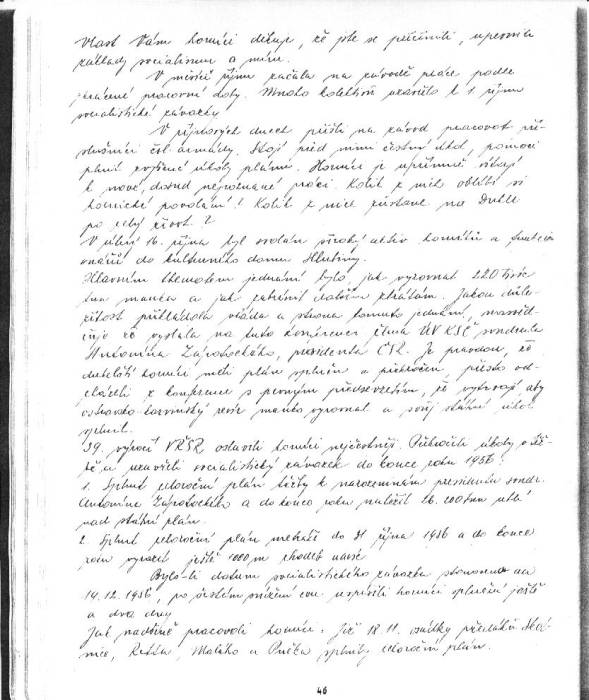 Vlast Vám horníci děkuje, že jste se přičinili, upevnili
základy socialismu a míru.
V měsíci říjnu začala na závodě práce podle
zkrácené pracovní doby. Mnoho kolektivů uzavřelo k 1. říjnu
socialistické závazky.
V říjnových dnech přišli na závod pracovat pří-
slušníci čsl. armády. Stojí před nimi čestný úkol, pomoci
plnit zvýšené úkoly plánu. Horníci je upřímně vítají
k nové, dosud nepoznané práci. Kolik z nich oblíbí si
hornické povolání! Kolik z nich zůstane na Dukle
po celý život?
V úterý 16. října byl svolán široký aktiv horníků a funkcio
nářů do kulturního domu Hlubiny.
Hlavním thematem jednání bylo jak vyrovnat 220 tisíc
tun manka a jak zabránit dalším ztrátám. Jakou důle-
žitost přikládala vláda a strana tomuto jednání, nasvěd-
čuje že vyslala na tuto konferenci člena ÚV KSČ soudruha
Antonína Zápotockého, presidenta ČSR. Je pravdou, že
dukelští horníci měli plán splněn a překročen, přesto od-
cházeli z konference s pevným předsevzetím, že vytrvají, aby
ostravsko karvinský revír manko vyrovnal a svůj státní úkol
splnil.
39. výročí VŘSR oslavili horníci nejčestněji. Překročili úkoly
a uzavřeli socialistický závazek do konce roku 1956:
1. Splnit celoroční plán těžby k narozeninám presidenta soudr.
Antonína Zápotockého a do konce roku naložit 26.200 tun uhlí
nad státní plán.
2. Splnit celoroční plán metráží do 31 října 1956 a do konce
roku vyrazit ještě 1000 m chodeb navíc.
Bylo-li datum socialistického závazku stanoveno na
14. 12. 1956, po částém snížení cen uspíšili horníci splnění ještě
o dva dny
Jak nadšeně pracovali horníci. Již 18. 11. osádky předáků
Malého a splnily celoroční plán.
46